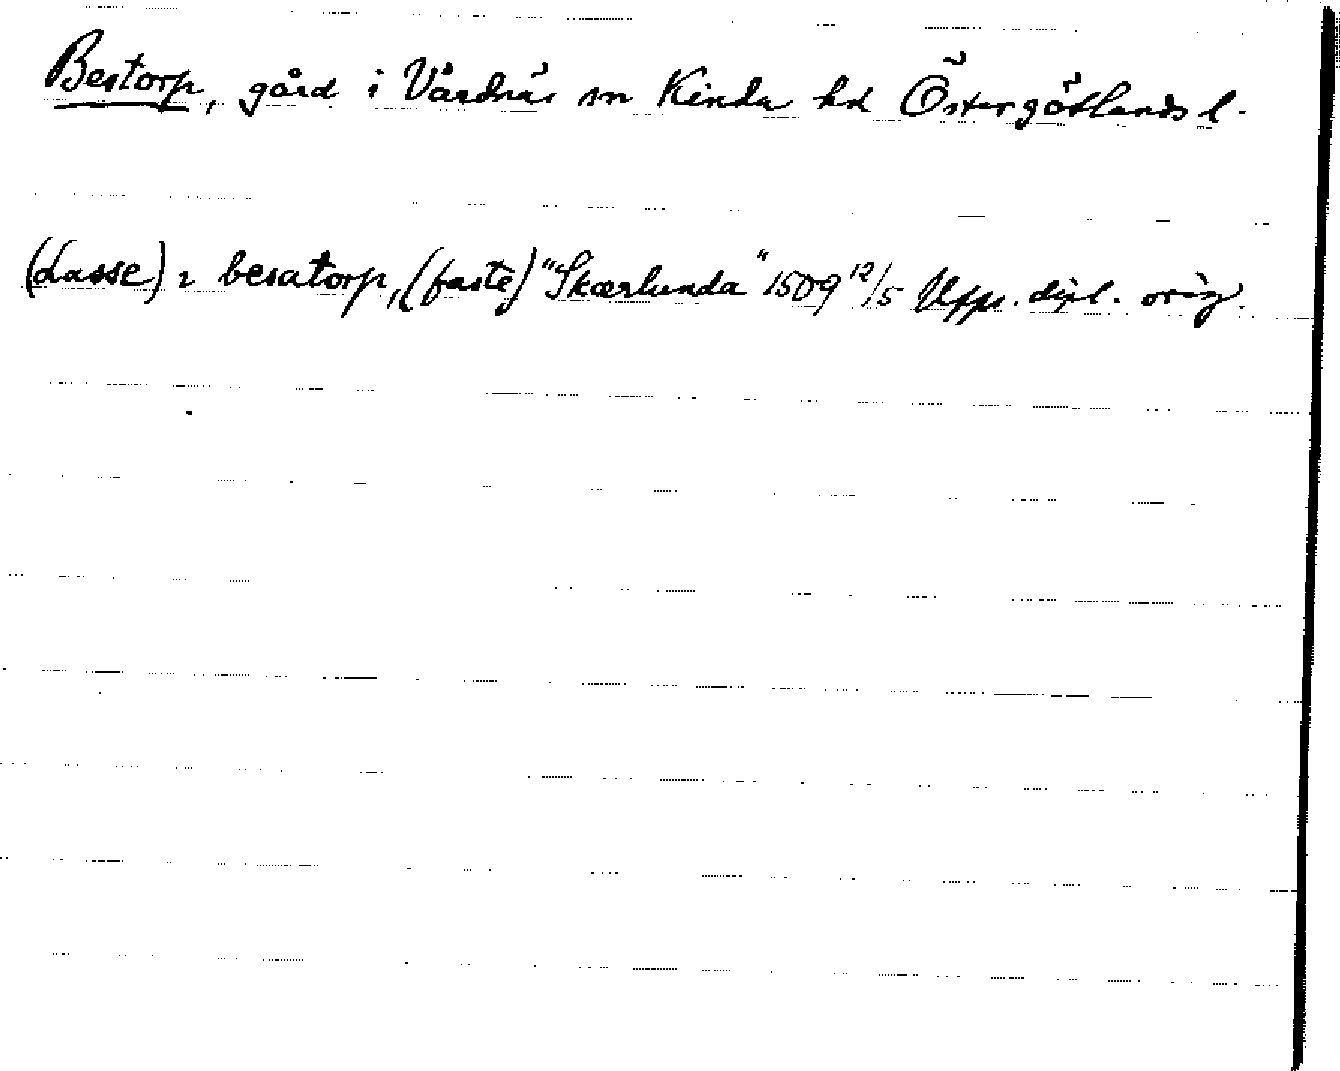 Bestorp, gård i Vårdnäs sn Kinda hd Östergötlands l.
(Lasse) i besatorp, (faste) "Skærlunda" 1509 12/5 Upps. dipl. orig.